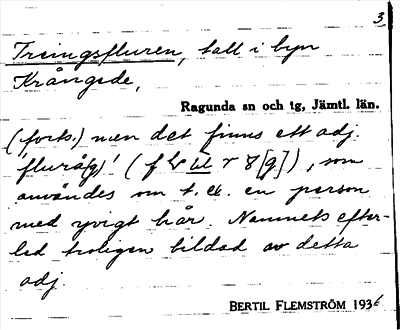 3.
Treingsfluren, tall i byn
Krångede,
Ragunda sn och tg, Jämtl. län.
(forts.) men det finns ett adj.
'flurå(g)' ( [g]), som
användes om t. ex. en person
med yvigt hår. Namnets efter-
led troligen bildad av detta
adj.
BERTIL FLEMSTRÖM 1936